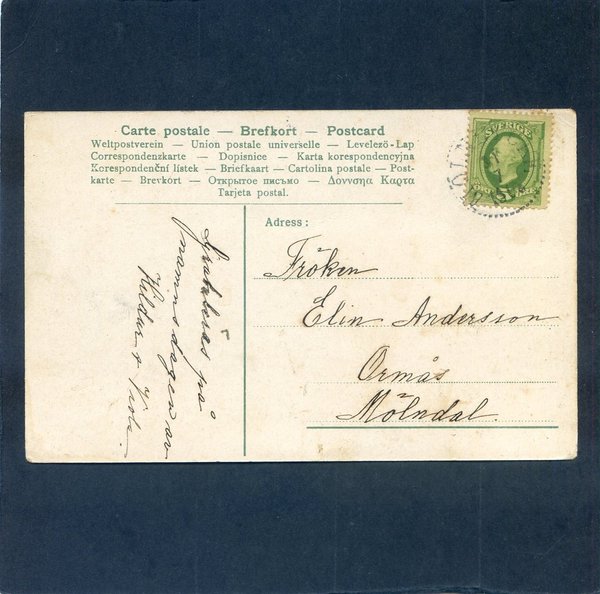 Carte postale — Brefkort — Postcard
Weltpostverein — Union postale universelle — Levelező-Lap
Correspondenzkarte — Dopisnice — Karta korespondencyjna
Korespondenční lístek — Briefkaart — Cartolina postale — Post-
karte — Brevkort — Открытое письмо — Δοννσηα Καρτα
Tarjeta postal.
SVERIGE
5
Adress:
Fröken
Elin Andersson
Ormås
Mölndal.
Gratuleras på
namnsdagen av
Hildur o Viola.